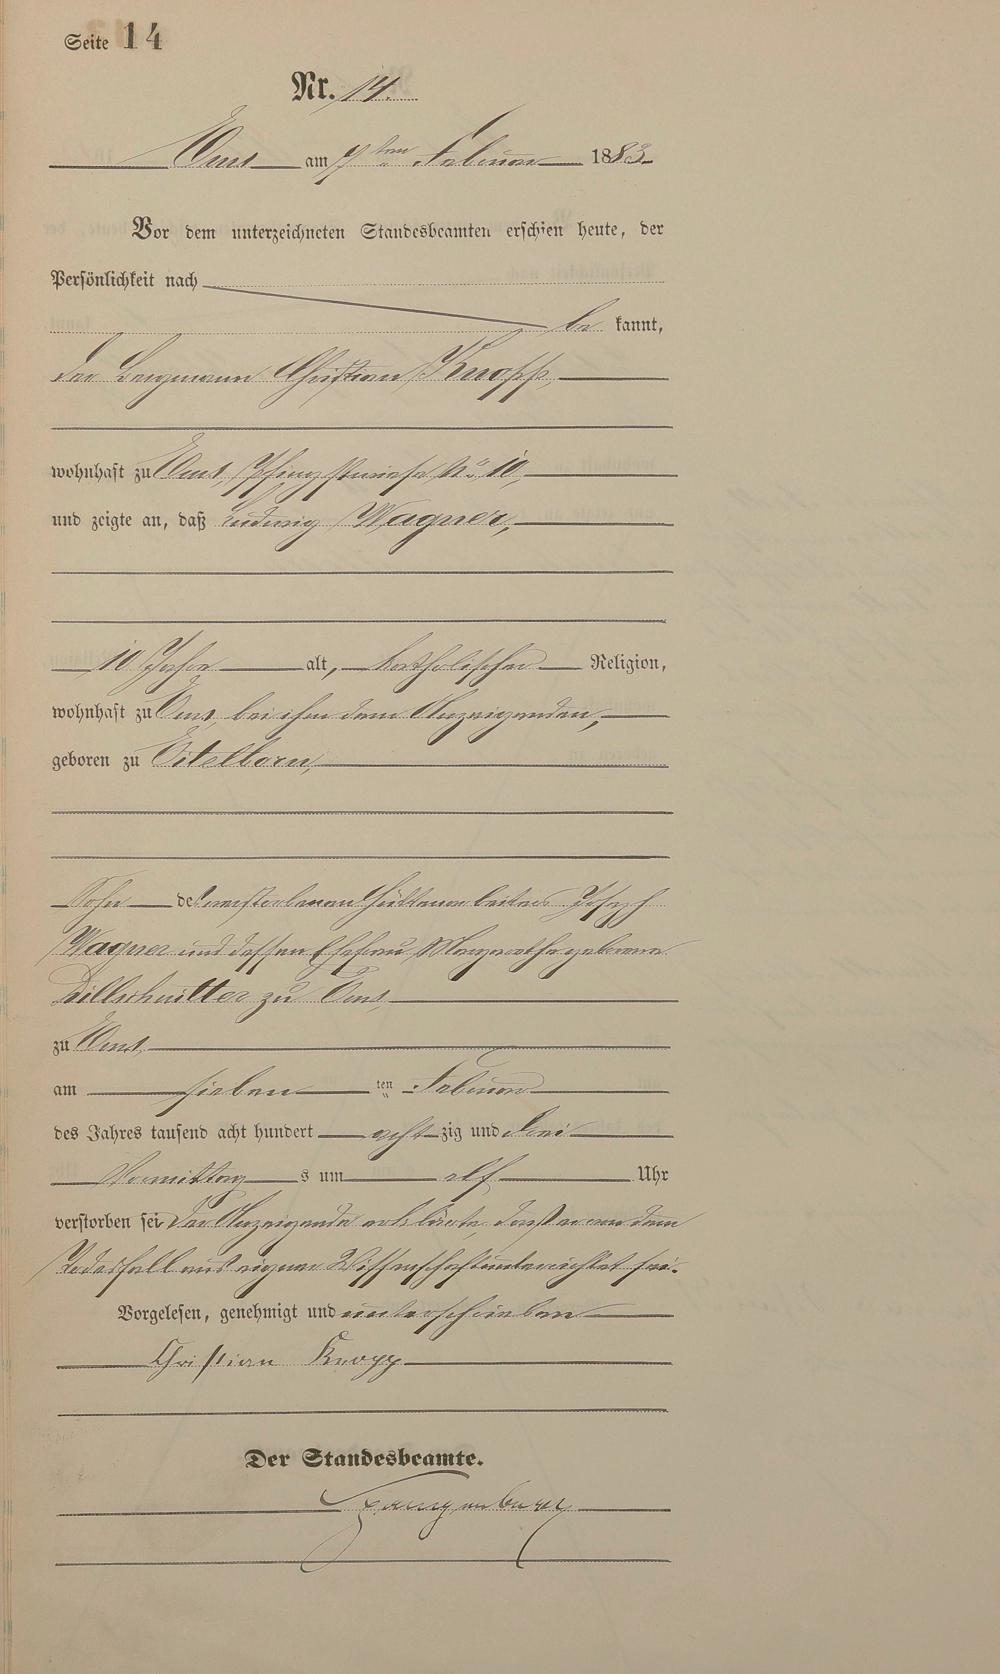 Seite 14
Nr. 14.
Ems am 7ten Februar 1883
Vor dem unterzeichneten Standesbeamten erschien heute, der
Persönlichkeit nach
be kannt,
der Bergmann Christian Knopp,
wohnhaft zu Ems, Pfingstwiese No 10,
und zeigte an, daß Ludwig Wagner,
10 Jahre alt, katholischer Religion,
wohnhaft zu Ems, bei ihm dem Anzeigenden,
geboren zu Eitelborn,
Sohn des verstorbenen Hüttenarbeiters Joseph
Wagner und dessen Ehefrau Margarethe geborene
Dillschnitter zu Ems,
zu Ems
am sieben ten Februar
des Jahres tausend acht hundert acht zig und drei
Vormittag s um elf Uhr
verstorben sei. Der Anzeigende erklärte, daß er von dem
Todesfall aus eigner Wissenschaft unterrichtet sei.
Vorgelesen, genehmigt und unterschrieben
Christian Knopp
Der Standesbeamte.
Spangenberg